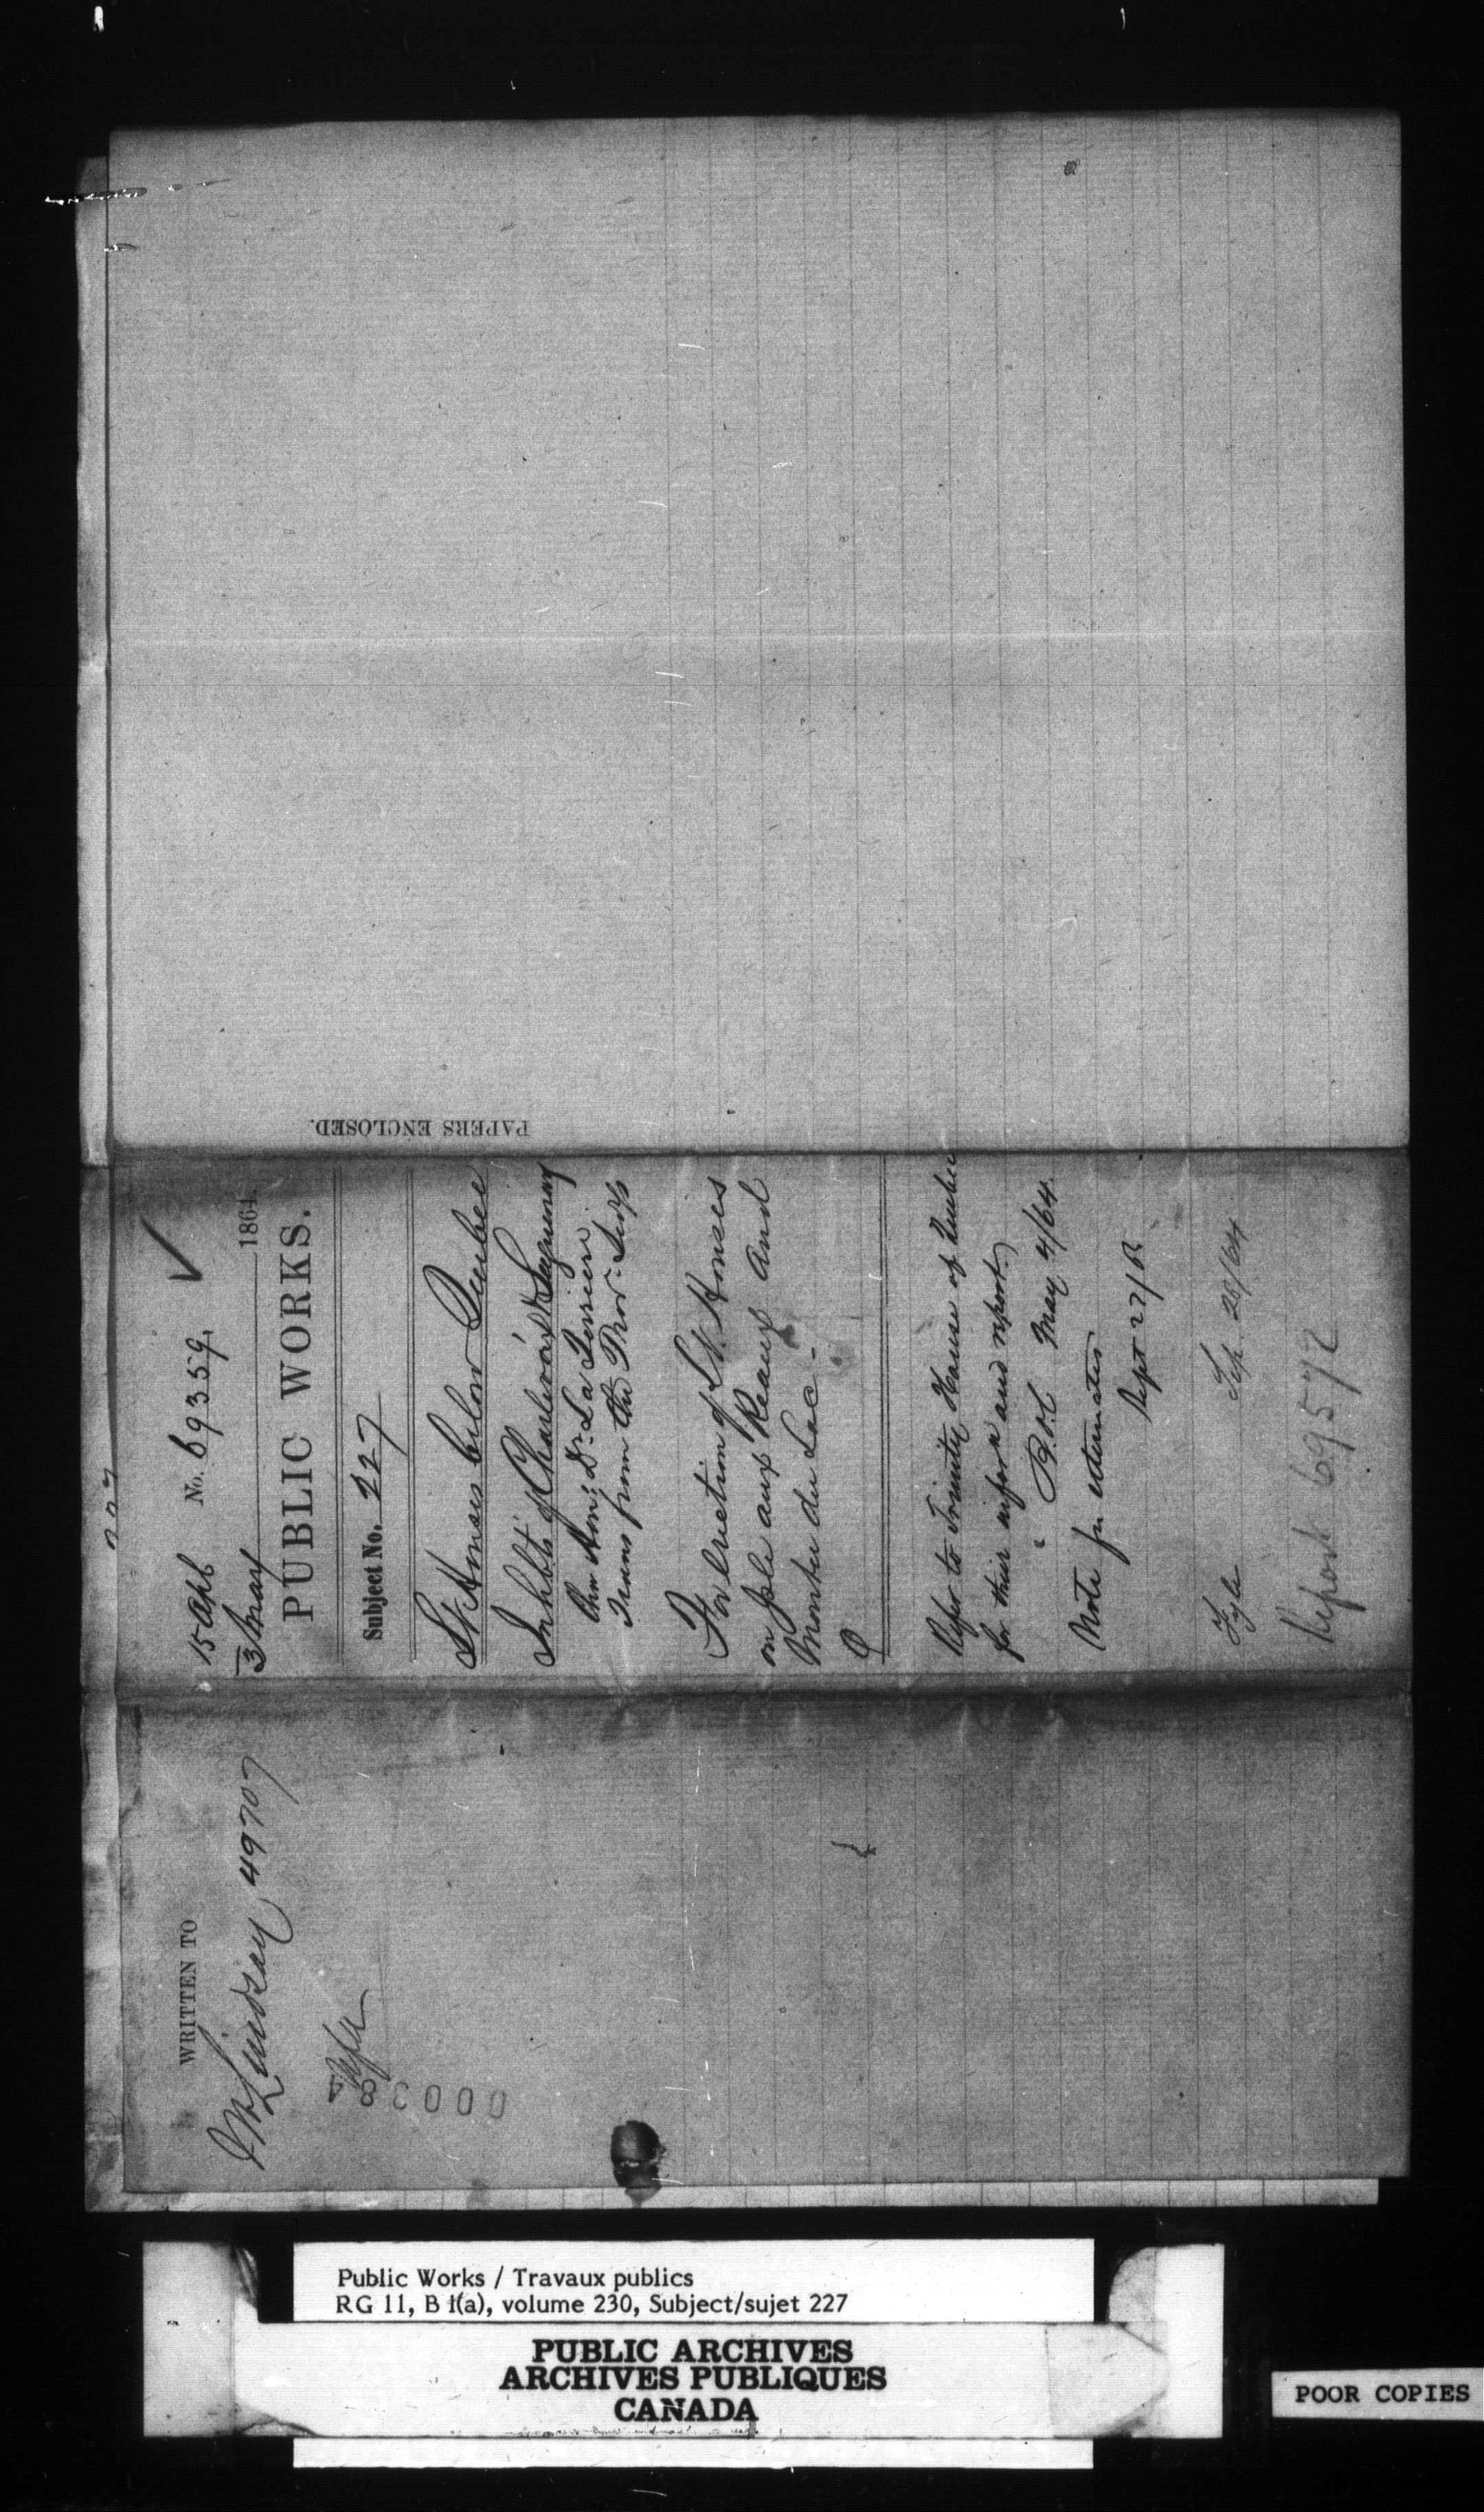 PAPERS ENCLOSED.
15 Apl No. 69359.
3 May 1864.
PUBLIC WORKS.
Subject No. 227
Lt Houses below Quebec
Inhbts of Charlevoix & Saguenay
Per Hon: Dr. La Terriere.
Trans from the Prov: Secy
For erection of Lt. Houses
on Isle aux Reaux and
Montée du Lac -
Refer to Trinity House of Quebec
for their inforn and report.
May 4/64.
Note for estimates
Sept 22/
Fyle Sep. 26/64
Report 69572
WRITTEN TO
Lindsay 49707
Refer
Public Works / Travaux publics
RG 11, B 1(a), volume 230, Subject/sujet 227
PUBLIC ARCHIVES
ARCHIVES PUBLIQUES
CANADA
POOR COPIES